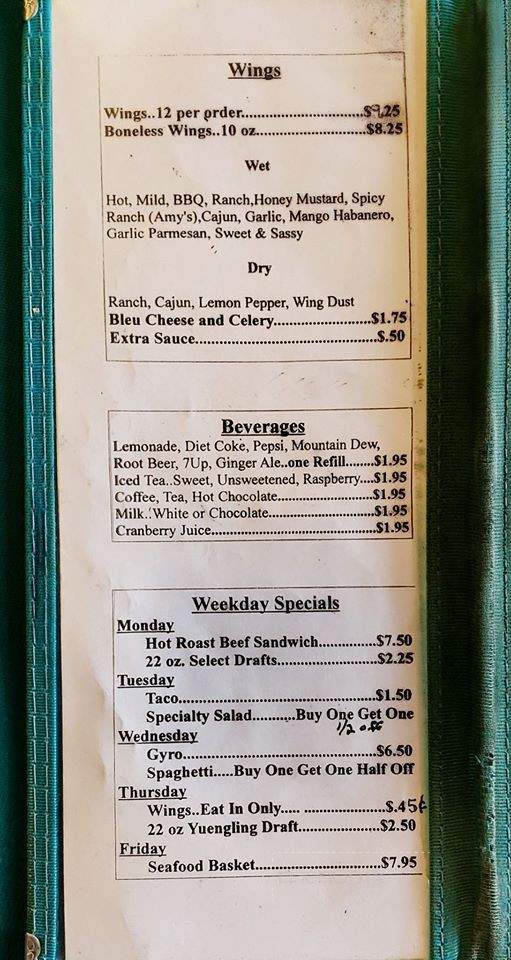 Wings
Wings..12 per order..............................$9.25
Boneless Wings..10 oz...........................$8.25
Wet
Hot, Mild, BBQ, Ranch,Honey Mustard, Spicy
Ranch (Amy's),Cajun, Garlic, Mango Habanero,
Garlic Parmesan, Sweet & Sassy
Dry
Ranch, Cajun, Lemon Pepper, Wing Dust
Bleu Cheese and Celery........................$1.75
Extra Sauce............................................$.50
Beverages
Lemonade, Diet Coke, Pepsi, Mountain Dew,
Root Beer, 7Up, Ginger Ale..one Refill.......$1.95
Iced Tea..Sweet, Unsweetened, Raspberry....$1.95
Coffee, Tea, Hot Chocolate.......................$1.95
Milk..White or Chocolate..........................$1.95
Cranberry Juice........................................$1.95
Weekday Specials
Monday
Hot Roast Beef Sandwich..............$7.50
22 oz. Select Drafts........................$2.25
Tuesday
Taco...............................................$1.50
Specialty Salad...........Buy One Get One
1/2 off
Wednesday
Gyro..............................................$6.50
Spaghetti.....Buy One Get One Half Off
Thursday
Wings..Eat In Only..... ....................$.45¢
22 oz Yuengling Draft....................$2.50
Friday
Seafood Basket...............................$7.95